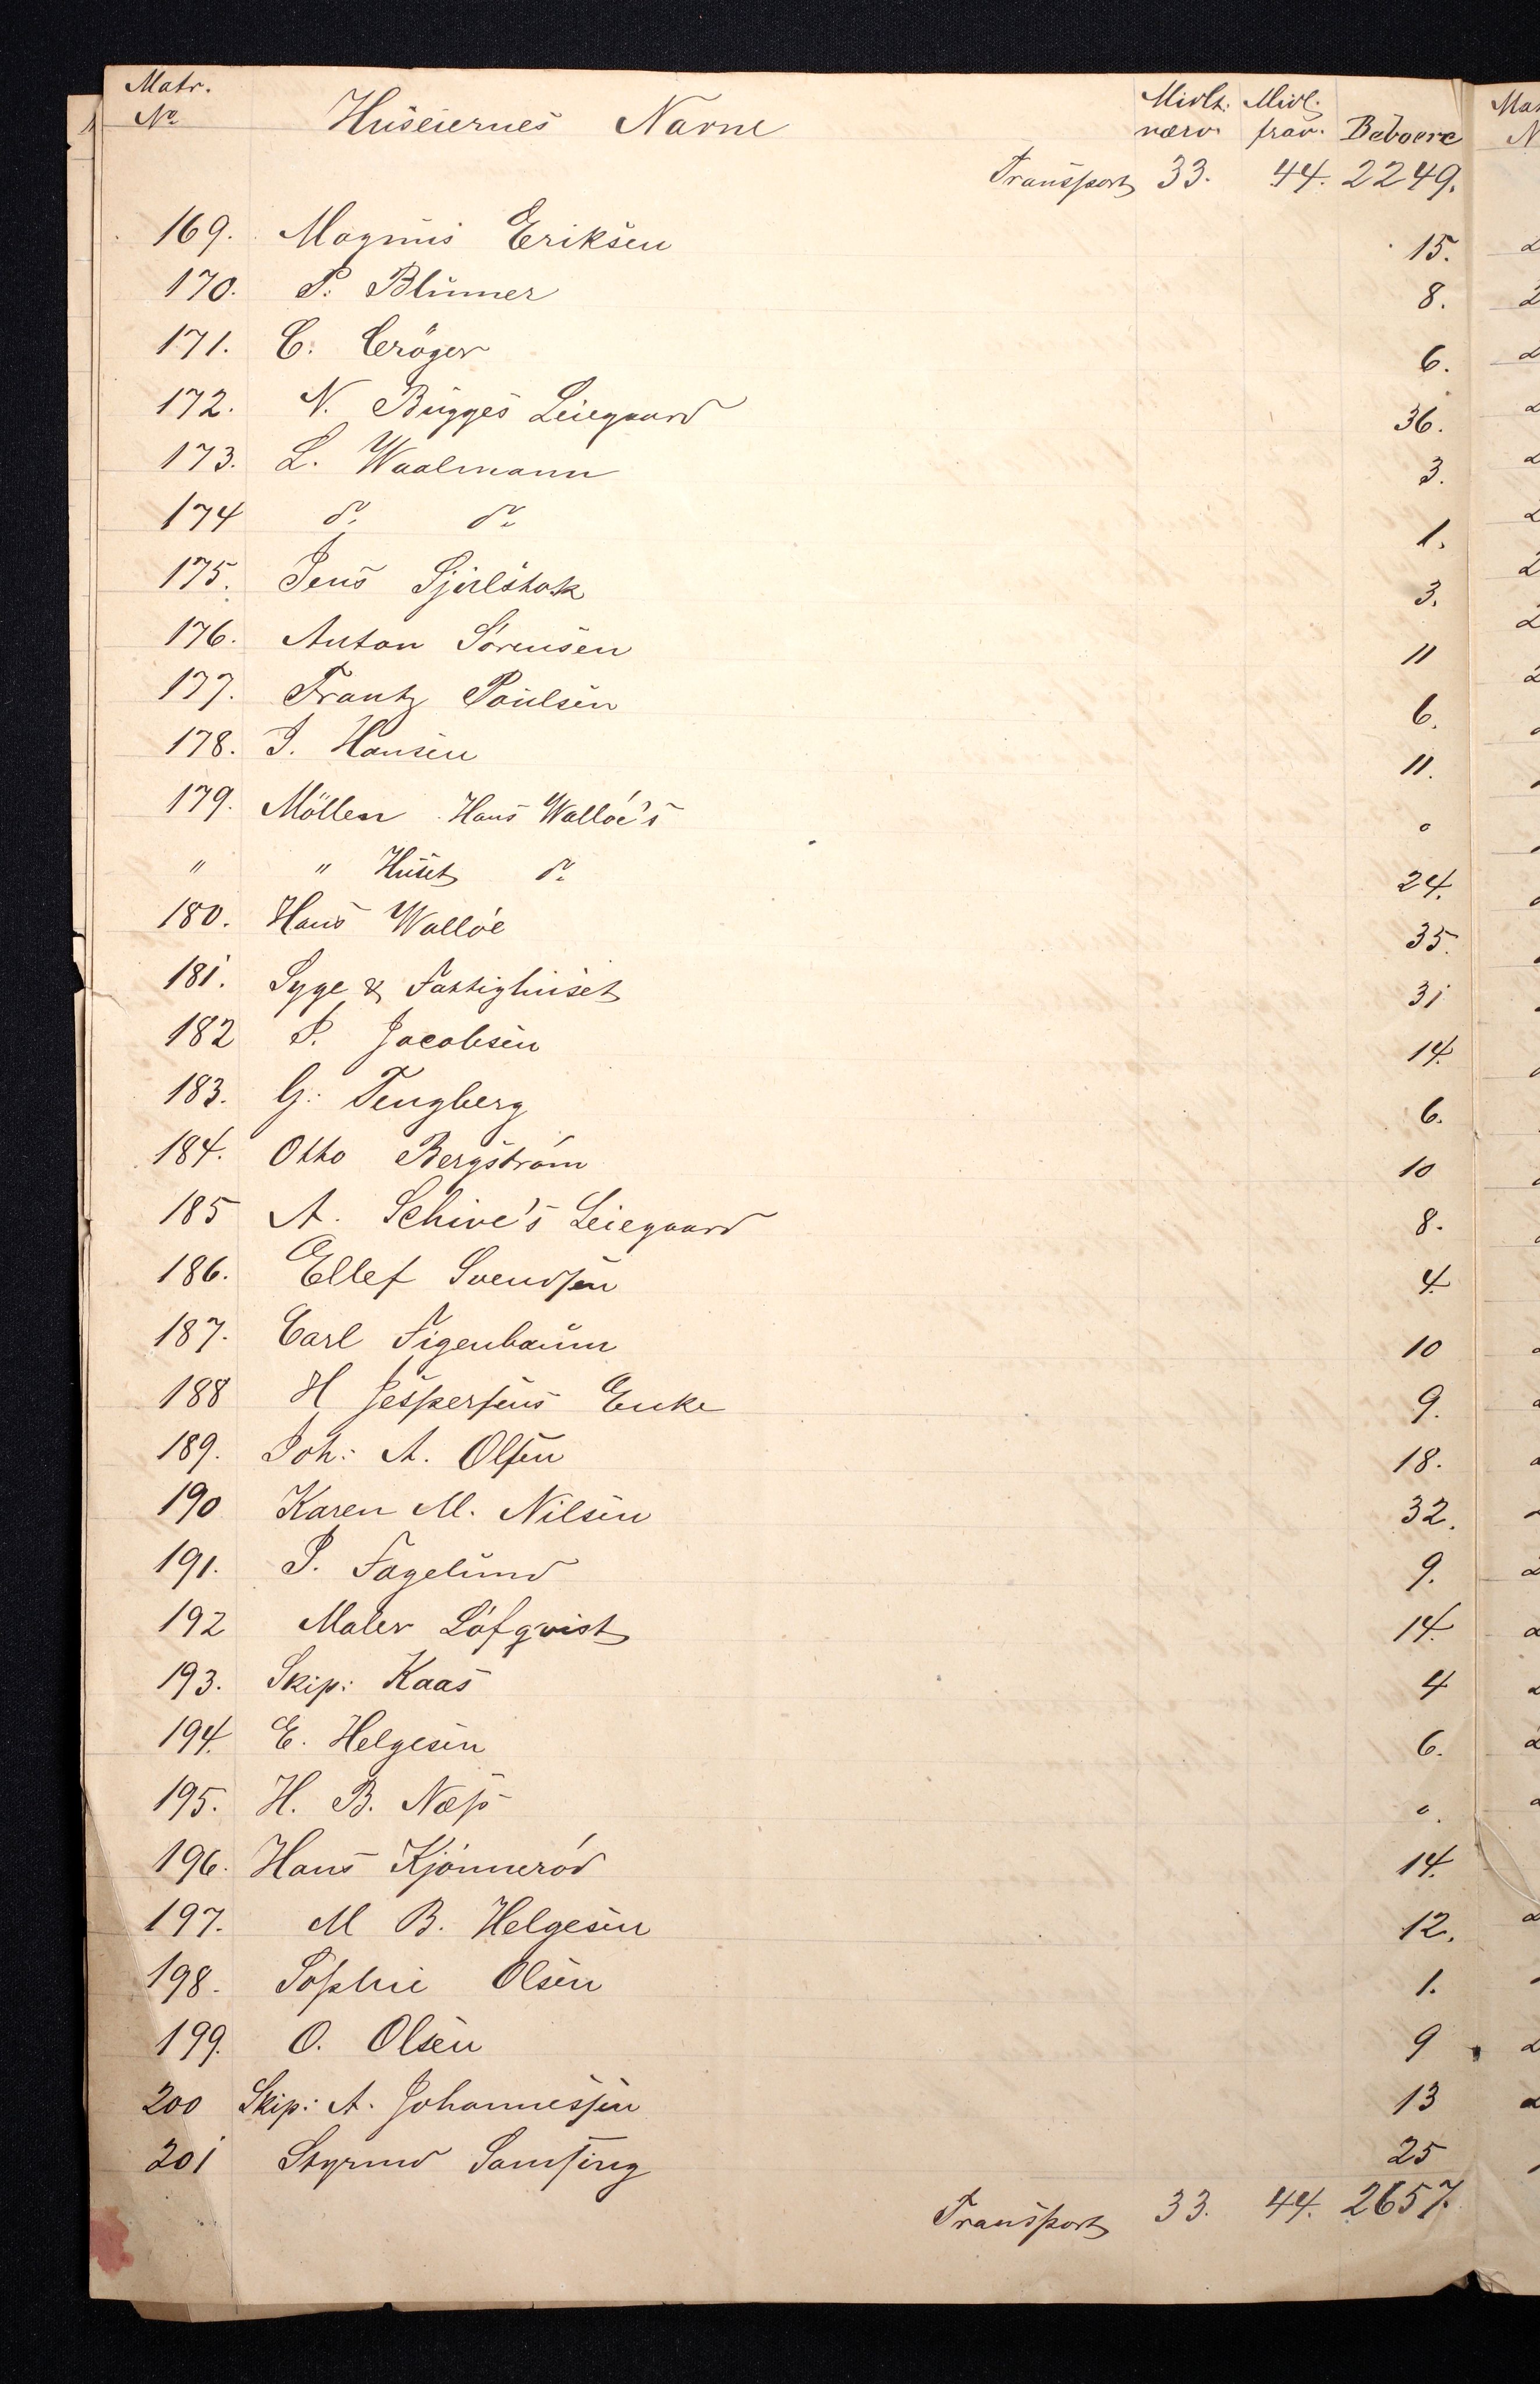 Matr. No Huseiernes Navne Midlt. nærv. Midl. frav. Beboere
Transport 33. 44. 2249.
169. Magnus Eriksen 15.
170. P. Blumer 8.
171. C. Cröger 6.
172. N. Bugges Leiegaard 36.
173. L. Waalmann 3.
174 do. do. 1.
175. Jens 3.
176. Anton Sörensen 11
177. Frantz Paulsen 6.
178. J. Hansen 11.
179. Möllen Hans Walløe's 0
" " Huset do. 24.
180. Hans Walløe 35.
181. Syge & Fattighuset 31
182 P. Jacobsen 14.
183. G: Tengberg 6.
184. Otto Bergström 10
185 A. Schive's Leiegaard 8.
186. Ellef Svendsen 4.
187. Carl Figenbaum 10
188 H Jespersens Enke 9.
189. Joh: A. Olsen 18.
190 Karen M. Nilsen 32.
191. P. Fagelund 9.
192 Maler Löfqvist 14.
193. Skip: Kaas 4
194. E. Helgesen 6.
195. H. B. Næss 0.
196. Hans Kjønnerød 14.
197. M B. Helgesen 12.
198. Sophie Olsen 1.
199. O. Olsen 9
200 Skip: A. Johannessen 13
201 Styrmd Samsing 25
Transport 33. 44. 2657.